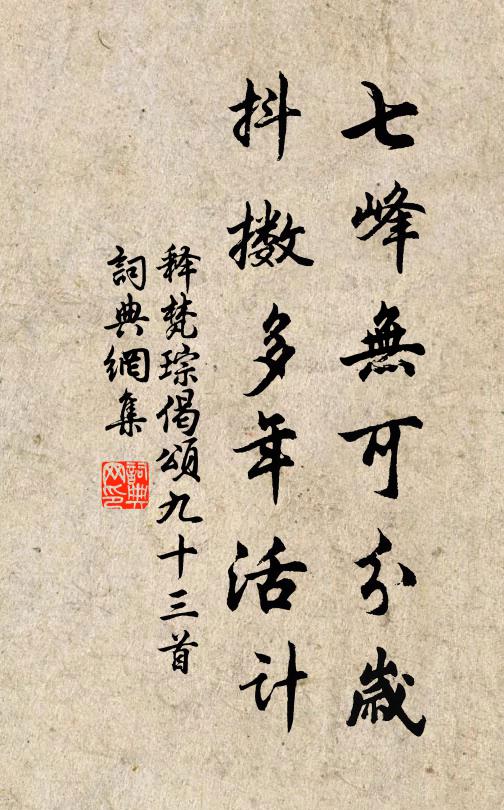 七峰無可分歲
抖擻多年活計
释梵琮偈頌九十三首
詞典網集
詞典
网印